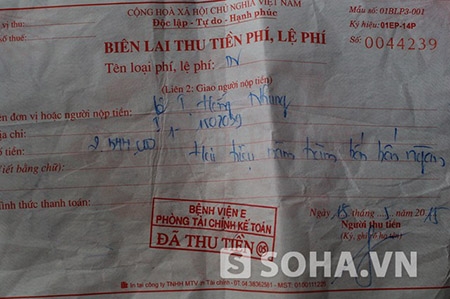 CỘNG HÒA XÃ HỘI CHỦ NGHĨA VIỆT NAM
Độc lập - Tự do - Hạnh phúc
Mẫu số: 01BLP3-001
Ký hiệu: 01EP-14P
Số: 0044239
BIÊN LAI THU TIỀN PHÍ, LỆ PHÍ
Tên loại phí, lệ phí:
(Liên 2: Giao người nộp tiền)
ên đơn vị hoặc người nộp tiền: Hồng Nhung
ịa chỉ:
ố tiền: 2.544.000
iết bằng chữ) Hai triệu năm trăm bốn bốn ngàn
ình thức thanh toán:
Ngày 15 tháng 1 năm 2015
Người thu tiền
(Ký, ghi rõ họ tên)
BỆNH VIỆN E
PHÒNG TÀI CHÍNH KẾ TOÁN
ĐÃ THU TIỀN 05
SOHA.VN
In tại công ty TNHH MTV in Tài chính - ĐT 04.38362581 - MST: 0100111225